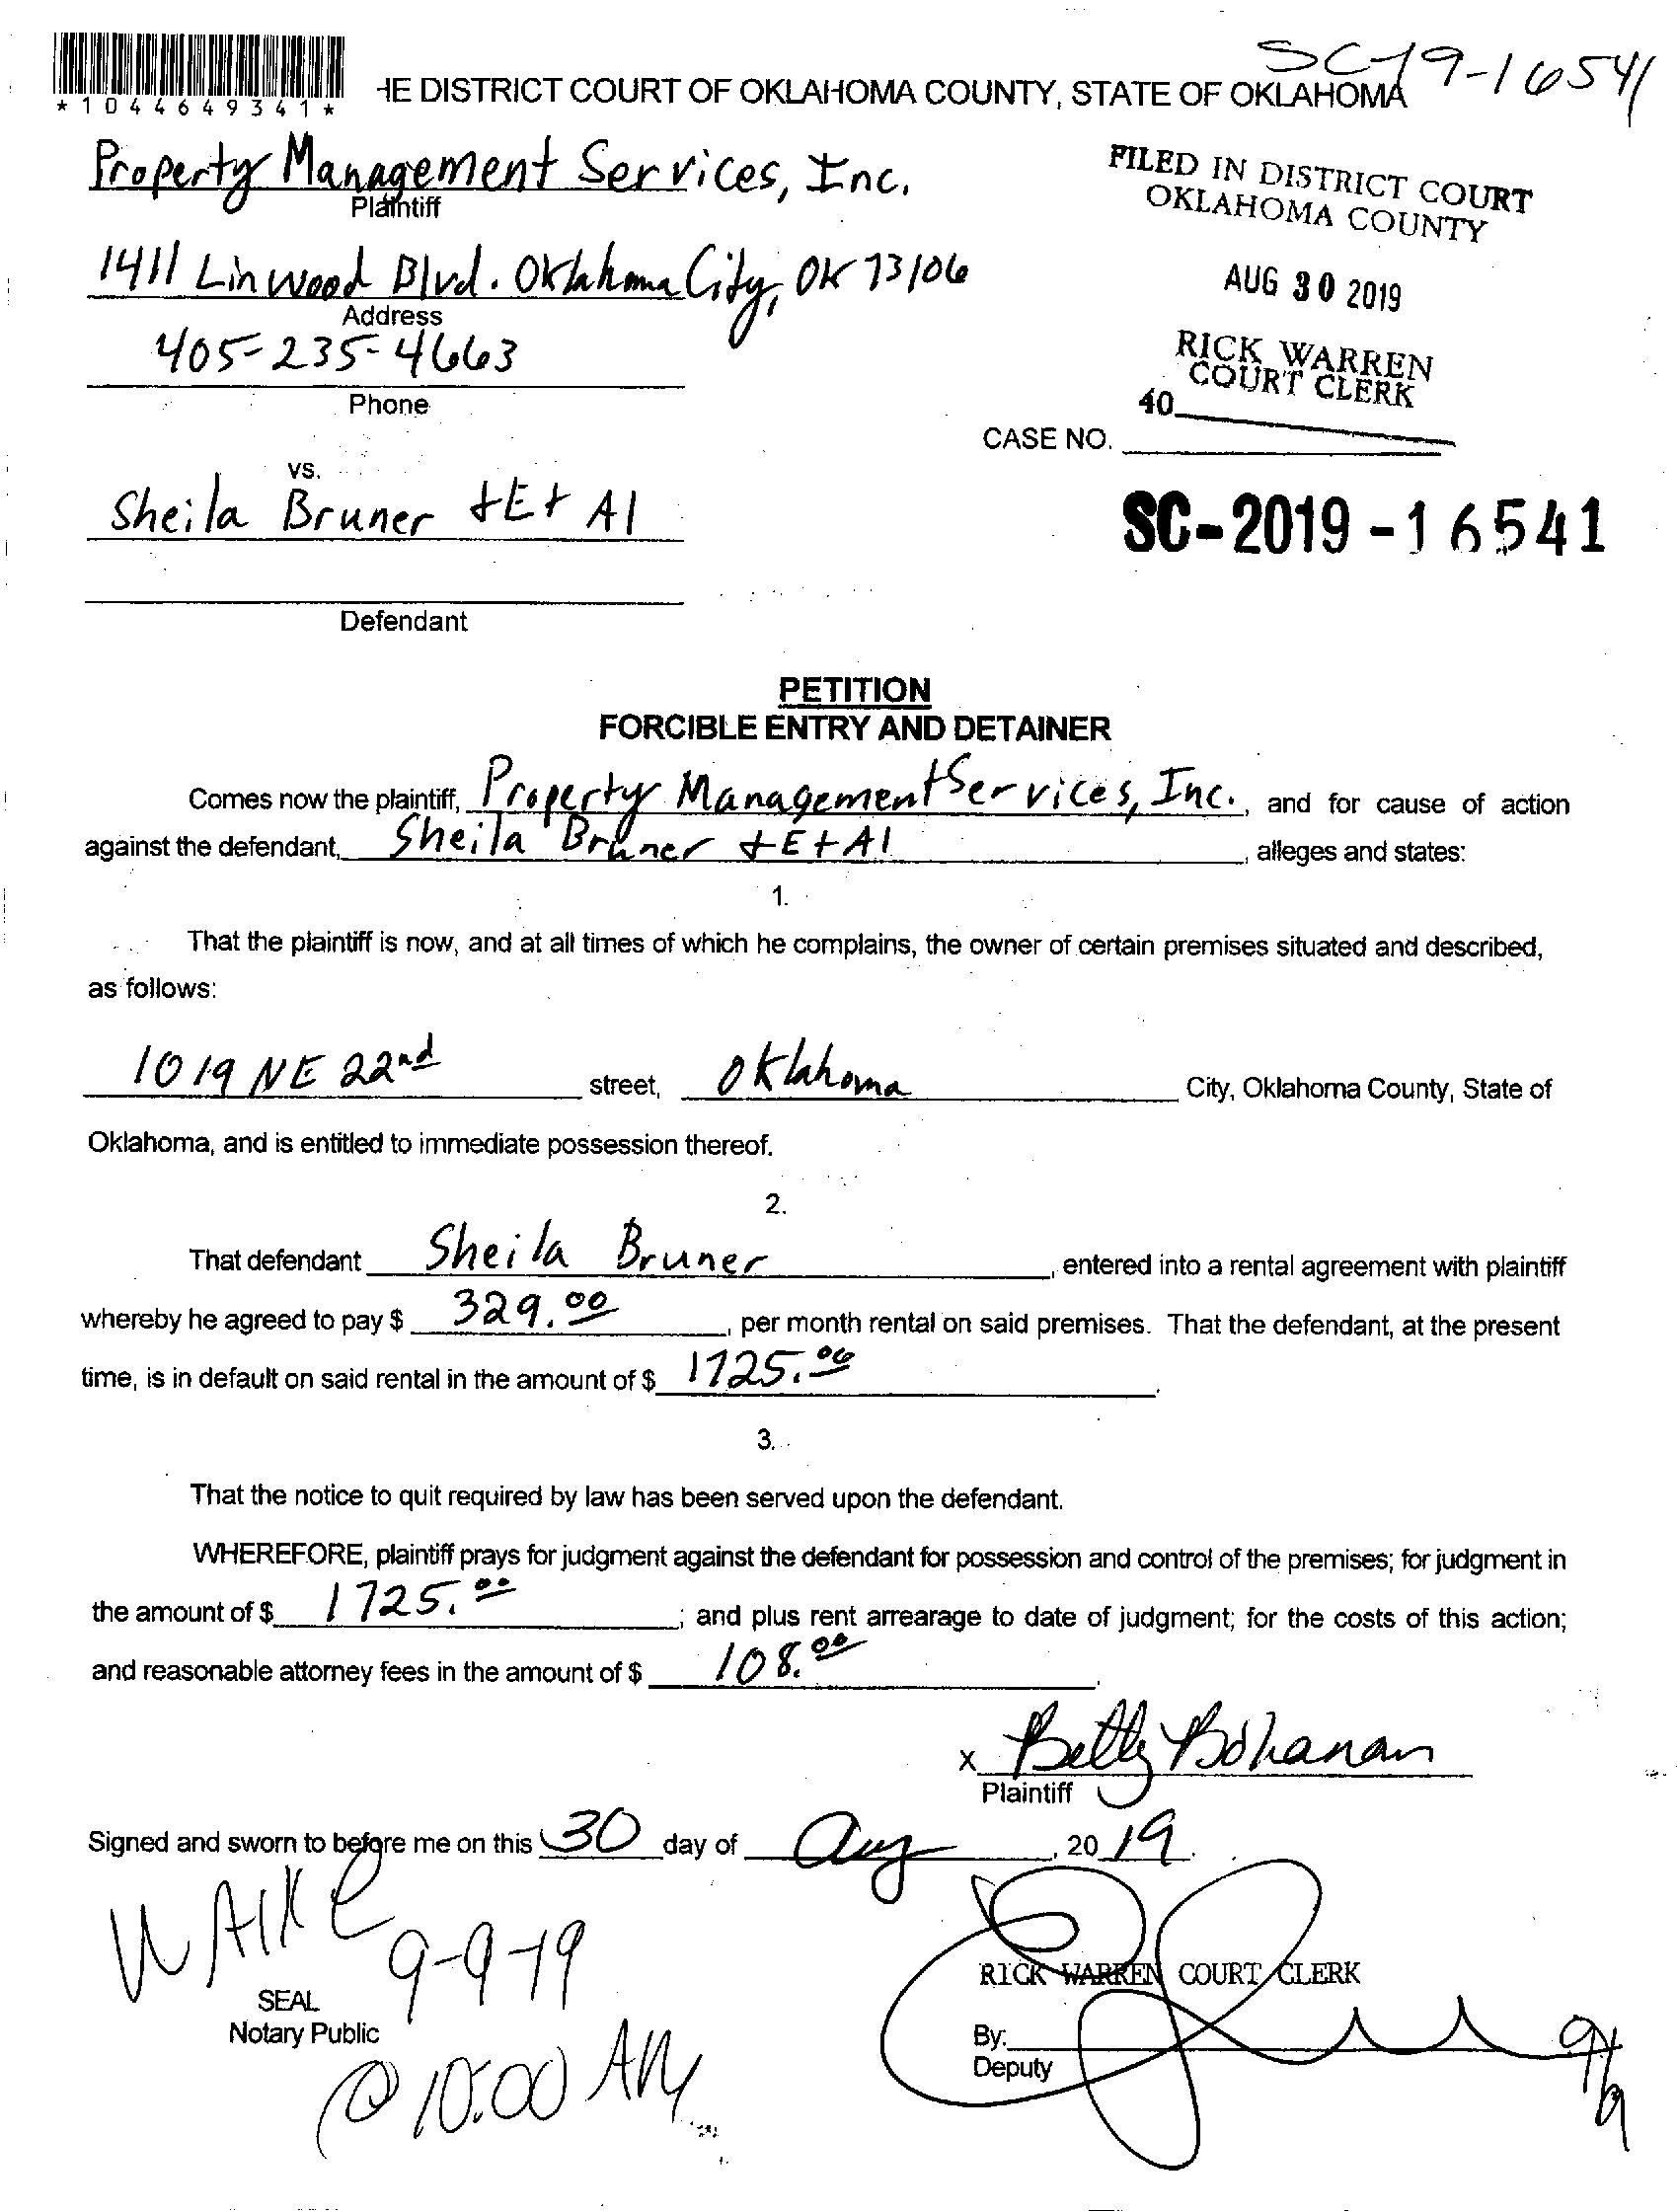 SC-19-16541
*1044649341*
HE DISTRICT COURT OF OKLAHOMA COUNTY, STATE OF OKLAHOMA
Property Management Services, Inc.
Plaintiff
FILED IN DISTRICT COURT
OKLAHOMA COUNTY
1411 Linwood Blvd. Oklahoma City, OK 73106
Address
AUG 30 2019
405-235-4663
Phone
RICK WARREN
COURT CLERK
40
CASE NO.
vs.
Sheila Bruner + Et Al
SC-2019-16541
Defendant
PETITION
FORCIBLE ENTRY AND DETAINER
Comes now the plaintiff, Property Management Services, Inc., and for cause of action
against the defendant, Sheila Bruner + Et Al, alleges and states:
1.
That the plaintiff is now, and at all times of which he complains, the owner of certain premises situated and described,
as follows:
1019 NE 22nd street, Oklahoma City, Oklahoma County, State of
Oklahoma, and is entitled to immediate possession thereof.
2.
That defendant Sheila Bruner, entered into a rental agreement with plaintiff
whereby he agreed to pay $ 329.00, per month rental on said premises. That the defendant, at the present
time, is in default on said rental in the amount of $ 1725.00.
3.
That the notice to quit required by law has been served upon the defendant.
WHEREFORE, plaintiff prays for judgment against the defendant for possession and control of the premises; for judgment in
the amount of $ 1725.00; and plus rent arrearage to date of judgment; for the costs of this action;
and reasonable attorney fees in the amount of $ 108.00.
x Betty Bohanan
Plaintiff
Signed and sworn to before me on this 30 day of Aug, 20 19.
9-9-19
RICK WARREN COURT CLERK
SEAL
Notary Public
By:
Deputy
@ 10:00 AM